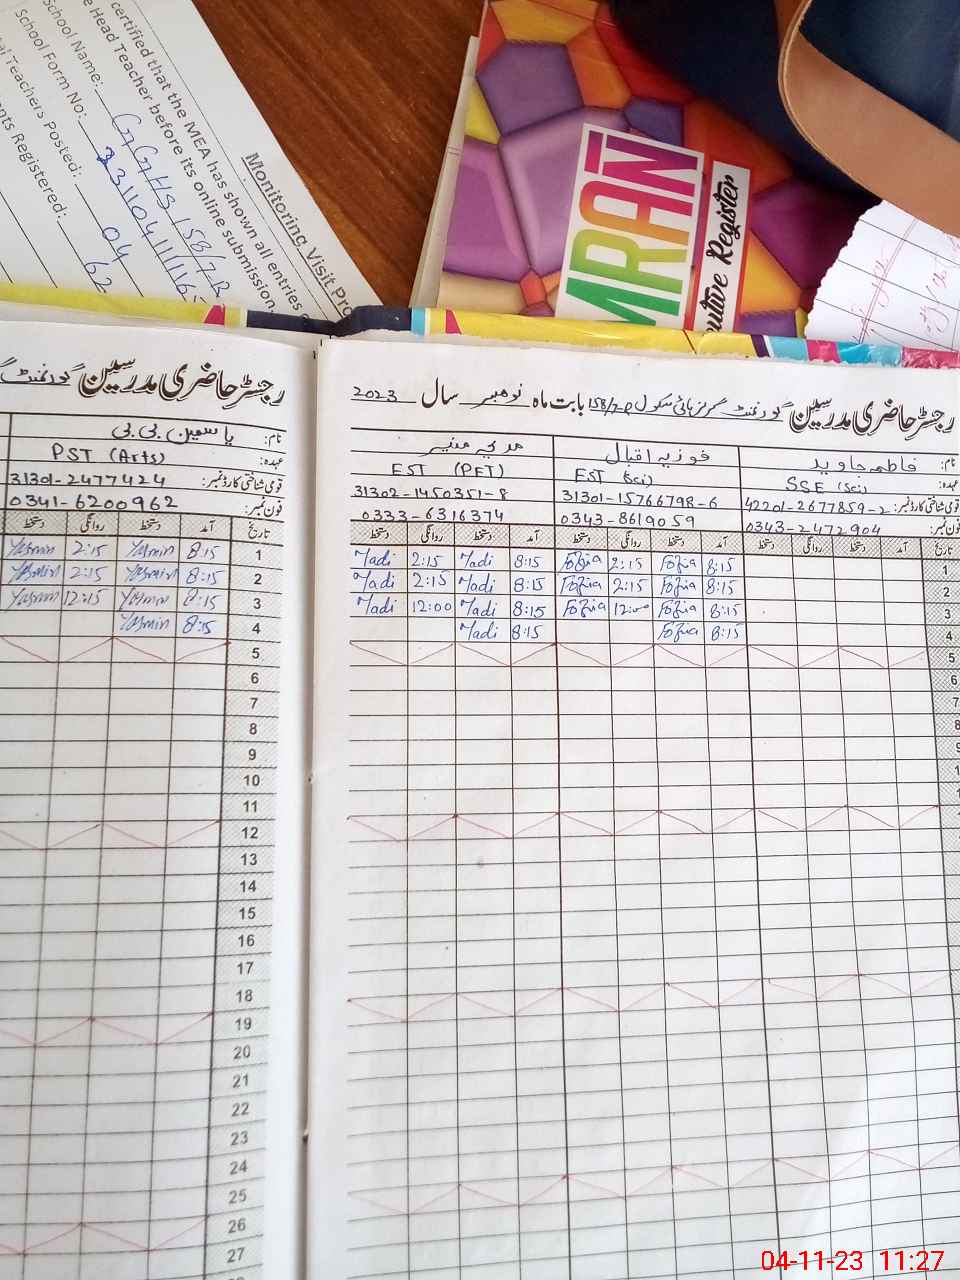 Monitoring Visit Pro
certified that the MEA has shown all entries
e Head Teacher before its online submission.
School Name: GGHS 158/7R
School Form No:
al Teachers Posted: 04
nts Registered: 62
MRAN
cutive Register
رجسٹر حاضری مدرسین گورنمنٹ
نام: یاسمین بی بی
عہدہ: PST (Arts)
قومی شناختی کارڈ نمبر: 31301-2477424
فون نمبر: 0341-6200962
تاریخ آمد دستخط روانگی دستخط
1 8:15 Yasmin 2:15 Yasmin
2 8:15 Yasmin 2:15 Yasmin
3 8:15 Yasmin 12:15 Yasmin
4 8:15 Yasmin
5
6
7
8
9
10
11
12
13
14
15
16
17
18
19
20
21
22
23
24
25
26
27
رجسٹر حاضری مدرسین گورنمنٹ گرلز ہائی سکول 158/7R بابت ماہ نومبر سال 2023
نام: فاطمہ جاوید فوزیہ اقبال مدیحہ منیر
عہدہ: SSE (Sci) EST (Sci) EST (PET)
قومی شناختی کارڈ نمبر: 42201-2677859-2 31301-15766798-6 31302-1450351-8
فون نمبر: 0343-2472904 0343-8619059 0333-6316374
تاریخ آمد دستخط روانگی دستخط آمد دستخط روانگی دستخط آمد دستخط روانگی دستخط
1 8:15 Fozia 2:15 Fozia 8:15 Madi 2:15 Madi
2 8:15 Fozia 2:15 Fozia 8:15 Madi 2:15 Madi
3 8:15 Fozia 12:00 Fozia 8:15 Madi 12:00 Madi
4 8:15 Fozia 8:15 Madi
5
6
7
8
9
04-11-23 11:27